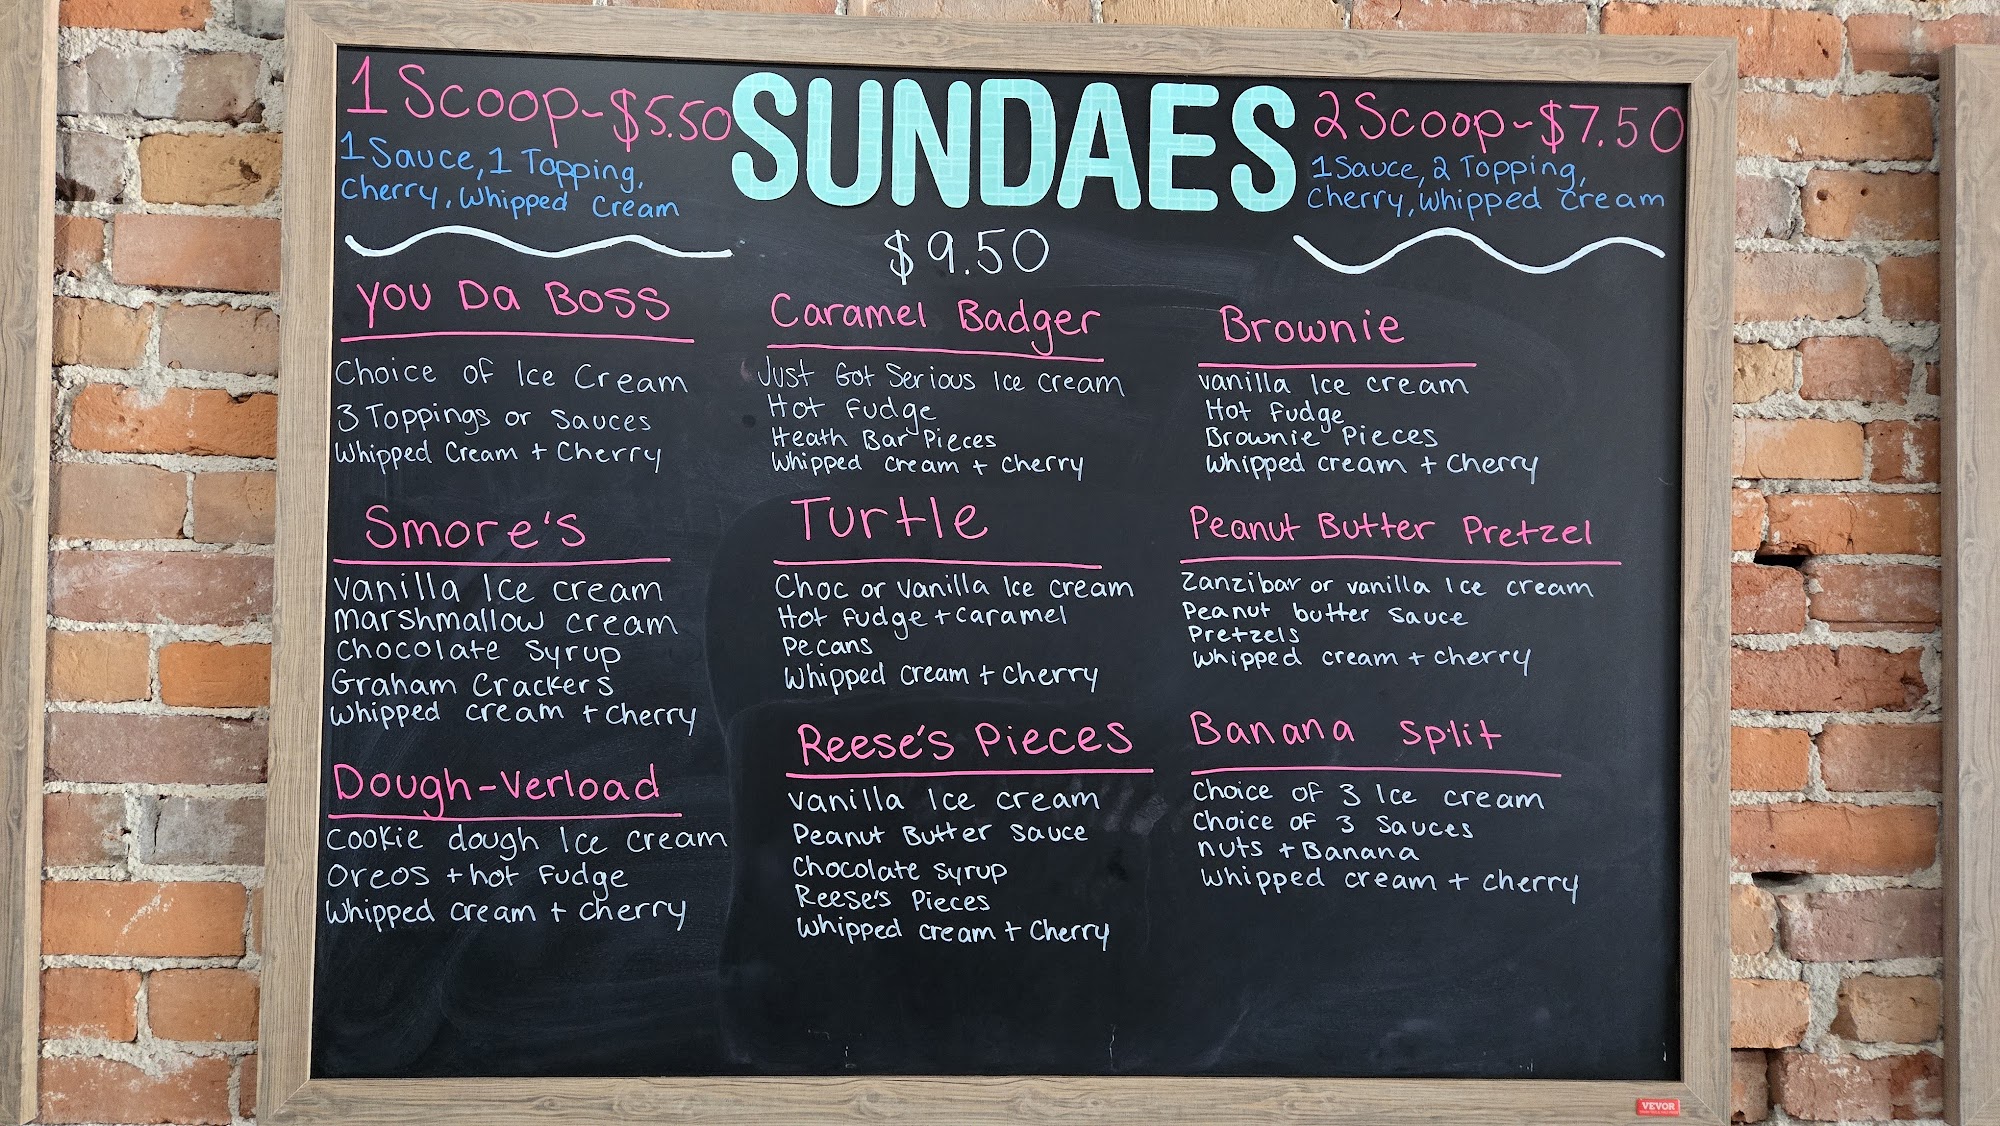 1 Scoop - $5.50
1 Sauce, 1 Topping,
Cherry, Whipped Cream
SUNDAES
$9.50
2 Scoop - $7.50
1 Sauce, 2 Topping,
Cherry, Whipped Cream
You Da Boss
Choice of Ice Cream
3 Toppings or Sauces
Whipped Cream + Cherry
Caramel Badger
Just Got Serious Ice cream
Hot Fudge
Heath Bar Pieces
Whipped cream + cherry
Brownie
vanilla Ice cream
Hot Fudge
Brownie Pieces
Whipped cream + Cherry
Smore's
vanilla Ice cream
marshmallow cream
chocolate Syrup
Graham Crackers
Whipped cream + Cherry
Turtle
Choc or vanilla Ice cream
Hot Fudge + Caramel
Pecans
Whipped cream + Cherry
Peanut Butter Pretzel
Zanzibar or vanilla Ice cream
Peanut butter Sauce
Pretzels
Whipped cream + cherry
Dough-verload
cookie dough Ice cream
Oreos + hot Fudge
Whipped cream + cherry
Reese's Pieces
vanilla Ice cream
Peanut Butter Sauce
Chocolate Syrup
Reese's Pieces
Whipped cream + Cherry
Banana Split
Choice of 3 Ice cream
Choice of 3 Sauces
nuts + Banana
Whipped cream + cherry
VEVOR